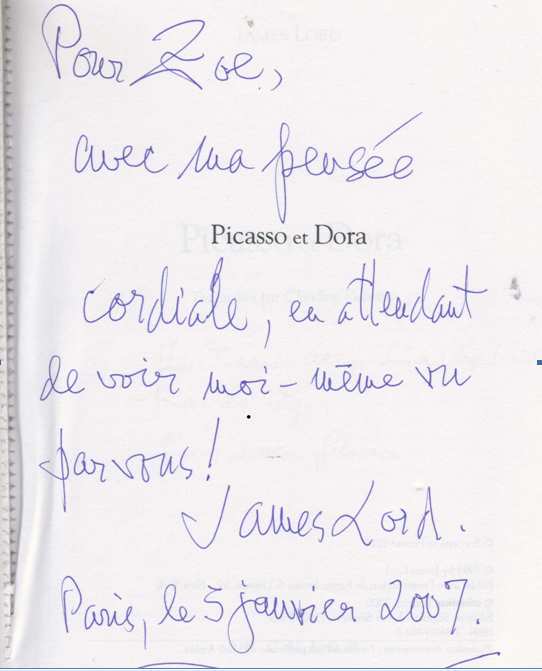 Pour Zoe,
avec ma pensée
Picasso et Dora
cordiale, en attendant
de voir moi-même vu
par vous!
James Lord.
Paris, le 5 janvier 2007.